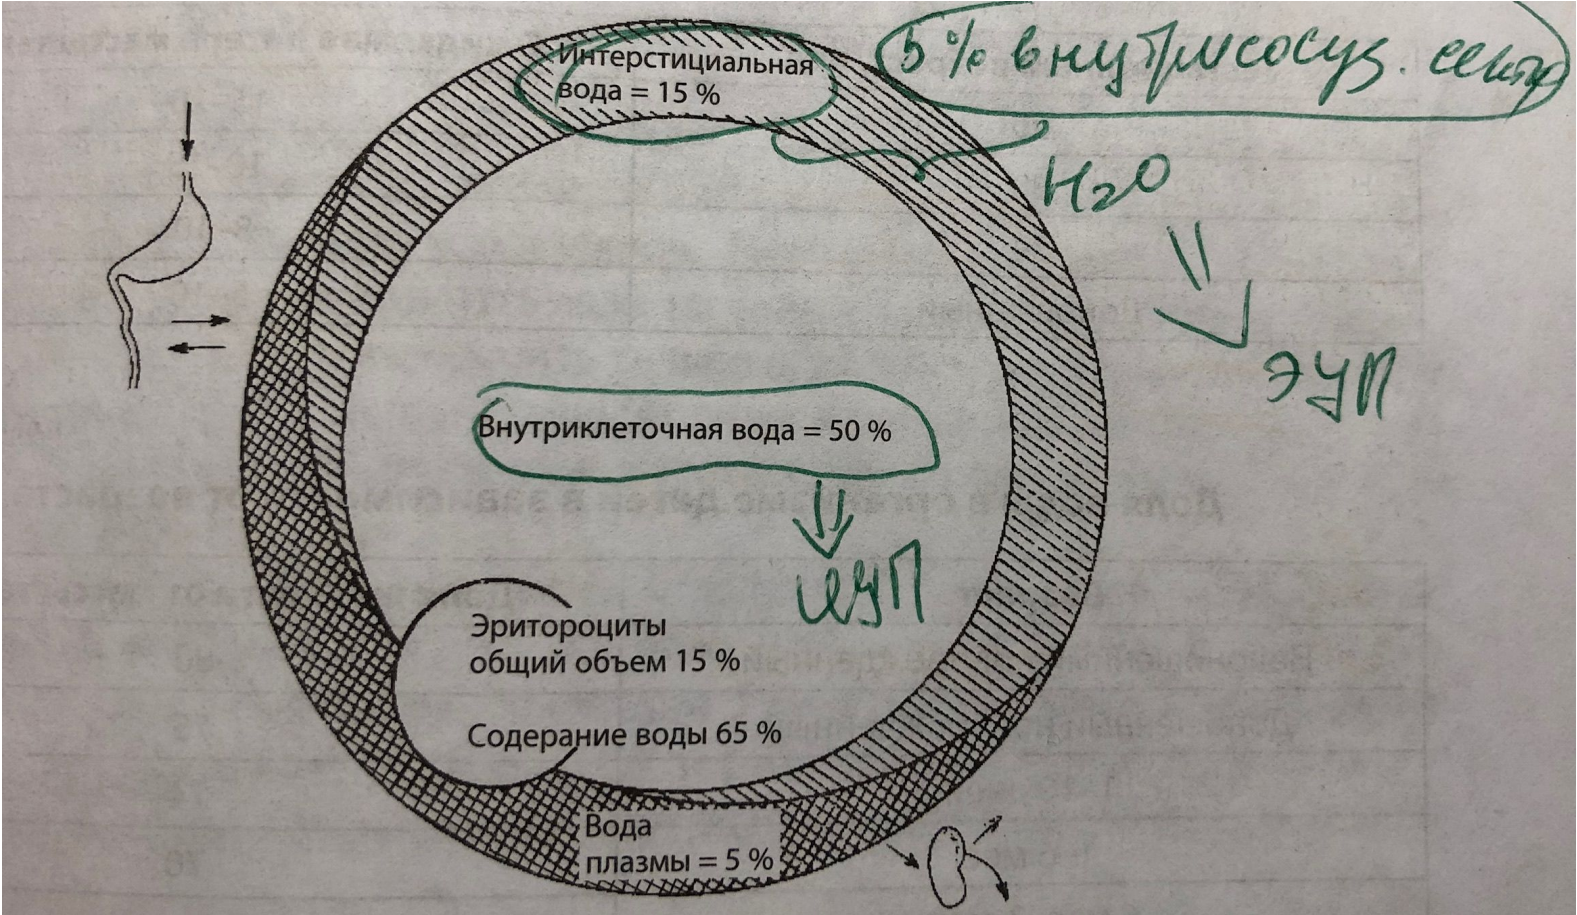 Интерстициальная
вода = 15 %
5% внутрисосуд. сектор
H2O
ЭУП
Внутриклеточная вода = 50 %
ИУП
Эритороциты
общий объем 15 %
Содерание воды 65 %
Вода
плазмы = 5 %